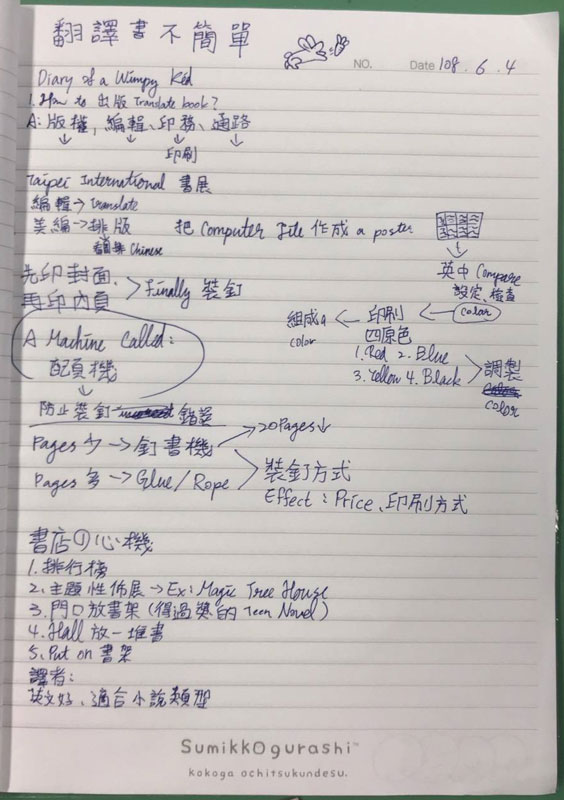 翻譯書不簡單
NO.
Date 108.6.4
Diary of a Wimpy Kid
1. How to 出版 translate book?
A: 版權, 編輯、印務、通路
↓ ↓ ↓ ↓
印刷
Taipei International 書展
編輯→Translate
美編→排版
Chinese
把 Computer file 作成 a poster.
↓
英中 Compare
設定、檢查
color
先印封面.
再印內頁 > Finally 裝釘
印刷
組成a color
四原色
1. Red 2. Blue
3. Yellow 4. Black > 調製
color
A Machine Called:
配頁機
↓
防止裝釘 錯誤
Pages 少→釘書機 → 20 Pages↓
Pages 多→Glue/Rope > 裝釘方式
Effect: Price、印刷方式
書店の心機
1. 排行榜
2. 主題性佈展→Ex: Magic Tree House
3. 門口放書架 (得過獎的 Teen Novel)
4. Hall 放一堆書
5. Put on 書架
譯者:
英文好、適合小說類型
Sumikkogurashi™
kokoga ochitsukundesu.